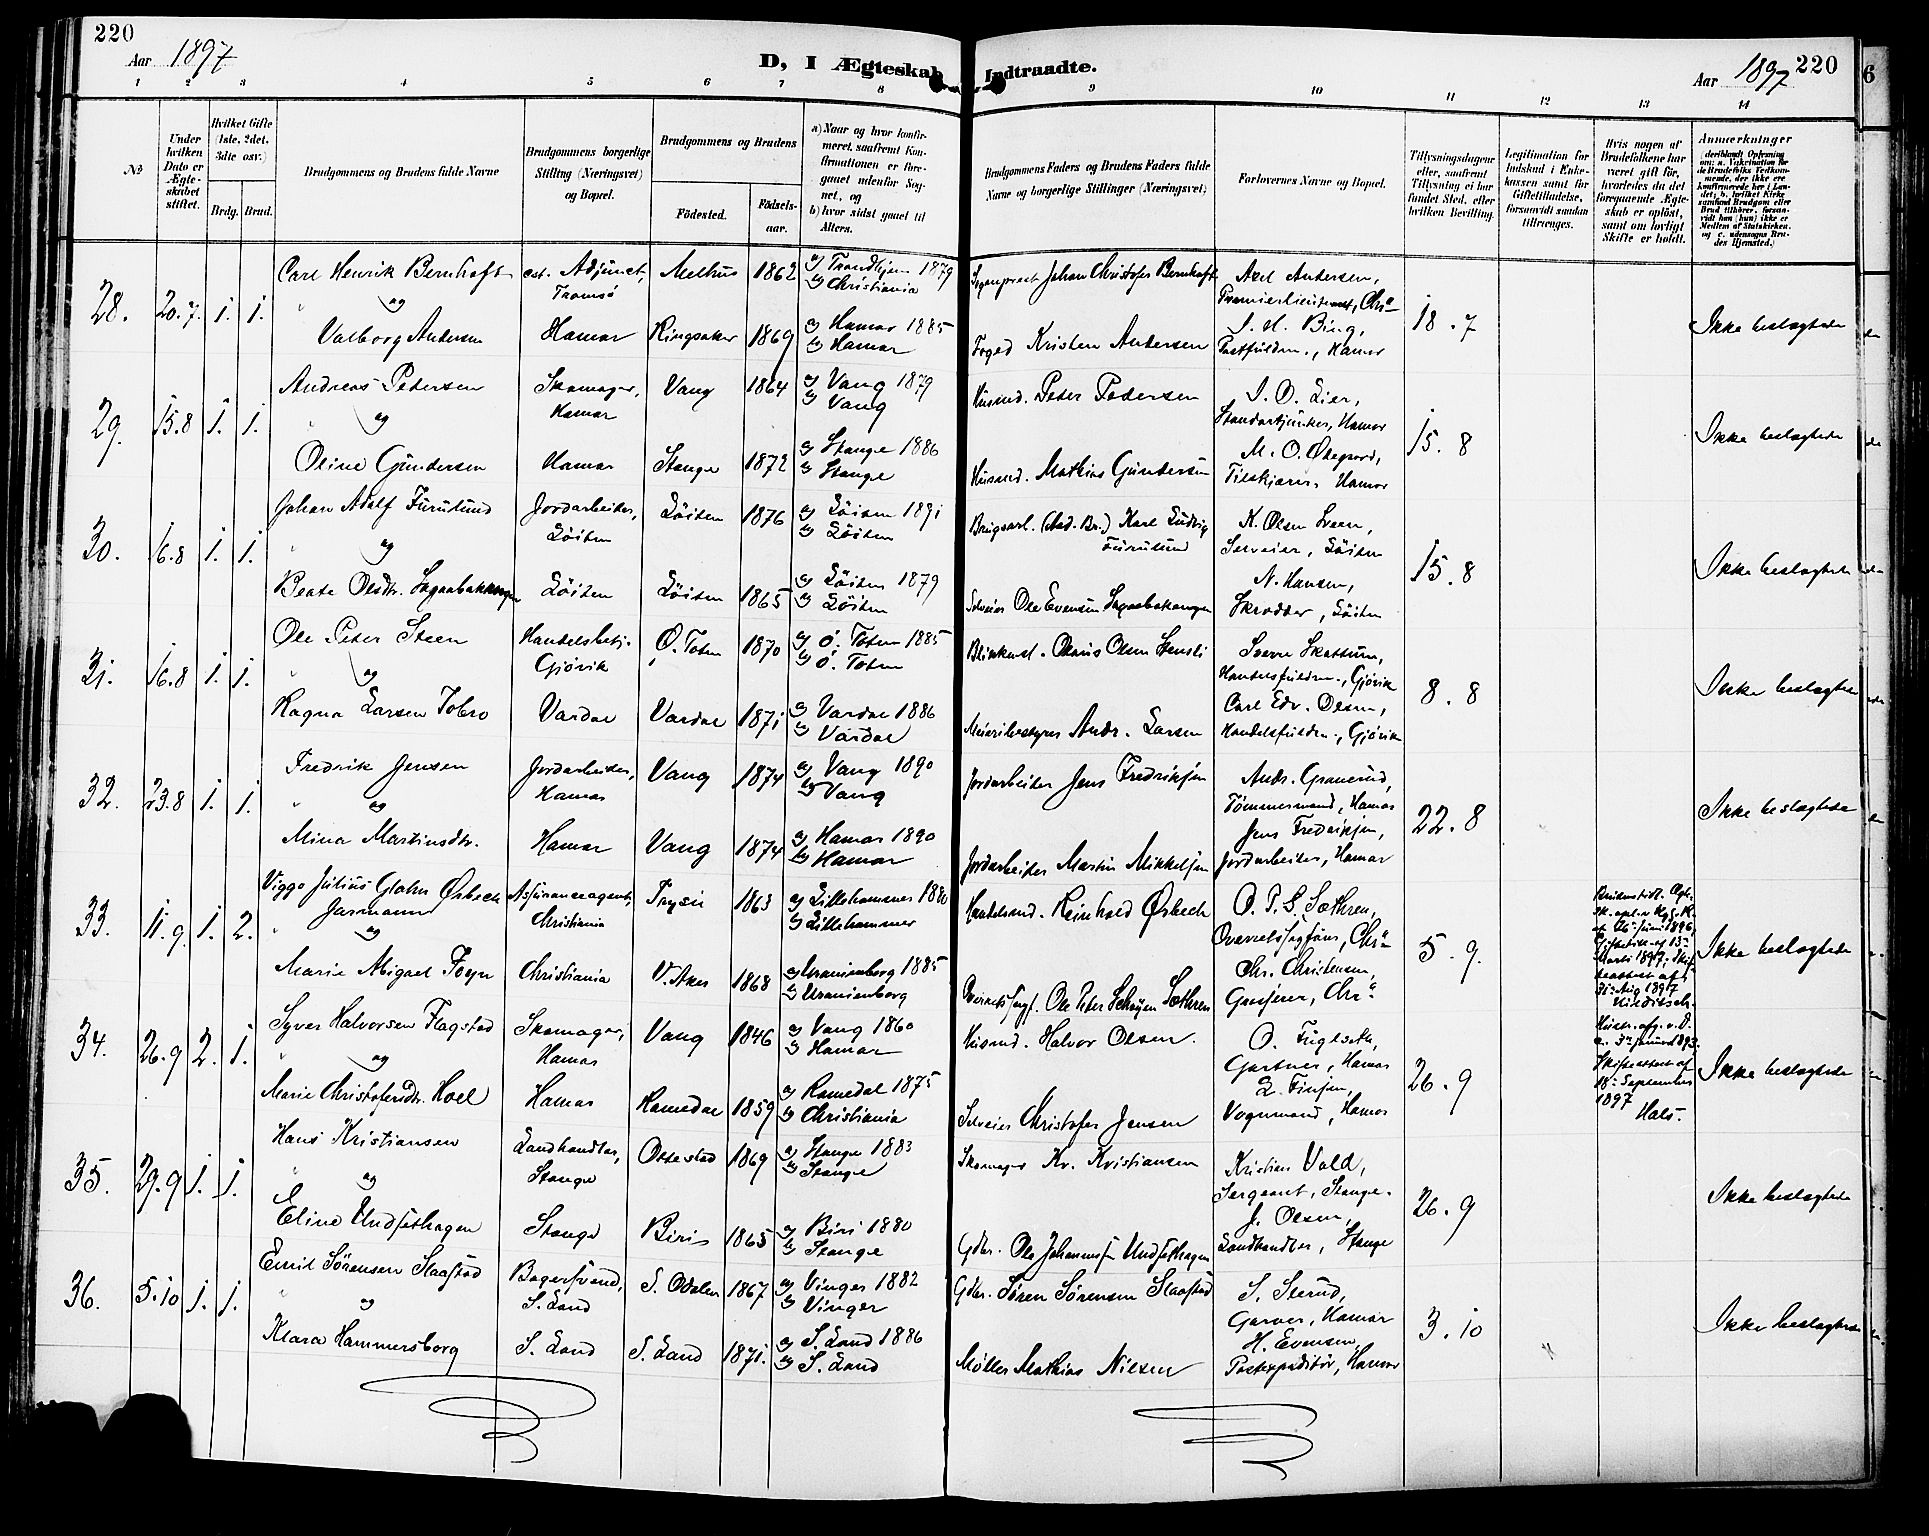 220
Aar 1897
D, I Ægteskab Indtraadte.
Aar 1897 220
6
1 2 3 4 5 6 7 8 9 10 11 12 13 14
No
Under hvilken Dato er Ægteskabet stiftet.
Hvilket Gifte (1ste, 2det, 3die osv.)
Brdg. Brud.
Brudgommens og Brudens fulde Navne
Brudgommens borgerlige Stilling (Næringsvei) og Bopæl.
Brudgommens og Brudens
Fødested.
Fødselsaar.
a) Naar og hvor konfirmeret, saafremt Konfirmationen er foregaaet udenfor Sognet, og
b) hvor sidst gaaet til Alters.
Brudgommens Faders og Brudens Faders fulde Navne og borgerlige Stillinger (Næringsvei)
Forlovernes Navne og Bopæl.
Tillysningsdagene eller, saafremt Tillysning ei har fundet Sted, efter hvilken Bevilling.
Legitimation for Indskud i Enkekassen samt for Giftetilladelse, forsaavidt saadan tiltrænges.
Hvis nogen af Brudefolkene har været gift før, hvorledes da det foregaaende Ægteskab er opløst, samt om lovligt Skifte er holdt.
Anmærkninger
28. 20.7. 1. 1.
Carl Henrik Bernhoft
og
Valborg Andersen
cst. Adjunct, Tromsø
Hamar
Melhus 1862
Ringsaker 1869
a) Trondhjem 1879
b) Christiania
a) Hamar 1885
b) Hamar
Sogneprest Johan Christofer Bernhoft
Foged Kristen Andersen
Axel Andersen,
Premierlieutenant, Chr.a
J. M. Bing,
Postfuldm., Hamar
18.7
Ikke beslægtede
29. 15.8 1. 1.
Andreas Petersen
og
Oline Gundersen
Skomager, Hamar
Hamar
Vang 1864
Stange 1872
a) Vang 1879
b) Vang
a) Stange 1886
b) Stange
Husmd. Peter Pedersen
Husmd. Mathias Gundersen
J. O. Lier,
Standartjunker, Hamar
M. O. Øhegaard,
Tilskjærer, Hamar
15.8
Ikke beslægtede
30. 16.8 1. 1.
Johan Adolf Furulund
og
Beate Olsdtr.
Jordarbeider, Löiten
Löiten
Löiten 1876
Löiten 1865
a) Löiten 1891
b) Löiten
a) Löiten 1879
b) Löiten
Karl Ludvig Furulund
Selveier Ole Evensen
K. Olsen Sveen,
Selveier, Löiten
N. Hansen,
Skrædder, Löiten
15.8
Ikke beslægtede
31. 16.8 1. 1.
Ole Peter Steen
og
Ragna Larsen Tobro
Handelsbetj. Gjövik
Vardal
Ø. Toten 1870
Vardal 1871
a) Ö. Toten 1885
b) Ö. Toten
a) Vardal 1886
b) Vardal
Olaus Olsen
Meieribestyrer Andr. Larsen
Sverre Skattum,
Handelsfuldm., Gjövik
Carl Edv. Olsen,
Handelsfuldm., Gjövik
8.8
Ikke beslægtede
32. 23.8 1. 1.
Fredrik Jensen
og
Mina Martinsdtr.
Jordarbeider, Hamar
Hamar
Vang 1874
Vang 1874
a) Vang 1890
b) Vang
a) Hamar 1890
b) Hamar
Jordarbeider Jens Fredriksen
Jordarbeider Martin Mikkelsen
Andr. Granerud,
Tömmermand, Hamar
Jens Fredriksen,
Jordarbeider, Hamar
22.8
Ikke beslægtede
33. 11.9. 1. 2.
Viggo Julius Glahn Ørbech
Jarmann
og
Marie Abigael Foyn
Assuranceagent, Christiania
Christiania
Trysil 1863
V. Aker 1868
a) Lillehammer 1880
b) Lillehammer
a) Uranienborg 1885
b) Uranienborg
Handelsmd. Reinhold Ørbech
Overretssagf. Ole Peter Schøyen Sæthren
O. P. S. Sæthren,
Overretssagförer, Chr.a
Chr. Christensen,
Chr.a
5.9.
Ikke beslægtede
34. 26.9 2. 1.
Syver Halvorsen Flagstad
og
Marie Christofersdtr. Hoel
Skomager, Hamar
Hamar
Vang 1846
Romedal 1859
a) Vang 1860
b) Hamar
a) Romedal 1875
b) Christiania
Husmd. Halvor Olsen.
Selveier Christofer Jensen
O. Fuglseth,
Gartner, Hamar
L. Finsen,
Vognmand, Hamar
26.9
Skifteattest af
18. September
1897
Hals.
Ikke beslægtede
35. 29.9 1. 1.
Hans Kristiansen
og
Eline Undsethagen
Landhandler, Stange
Stange
Ottestad 1869
Biri 1865
a) Stange 1883
b) Stange
a) Biri 1880
b) Stange
Skomager Kr. Kristiansen
Gdbr. Ole Johannessen Undsethagen
Kristian Vold,
Sergeant, Stange.
J. Olsen,
Landhandler, Stange
26.9
Ikke beslægtede
36. 5.10 1. 1.
Emil Sørensen Slaastad
og
Klara Hammersborg
Bagersvend, S. Land
S. Land
S. Odalen 1867
S. Land 1871.
a) Vinger 1882
b) Vinger
a) S. Land 1886
b) S. Land
Gdbr. Søren Sørensen Slaastad
Møller Mathias Nilsen
S. Sterud,
Garver, Hamar
H. Evensen,
Postexpeditør, Hamar
3.10
Ikke beslægtede